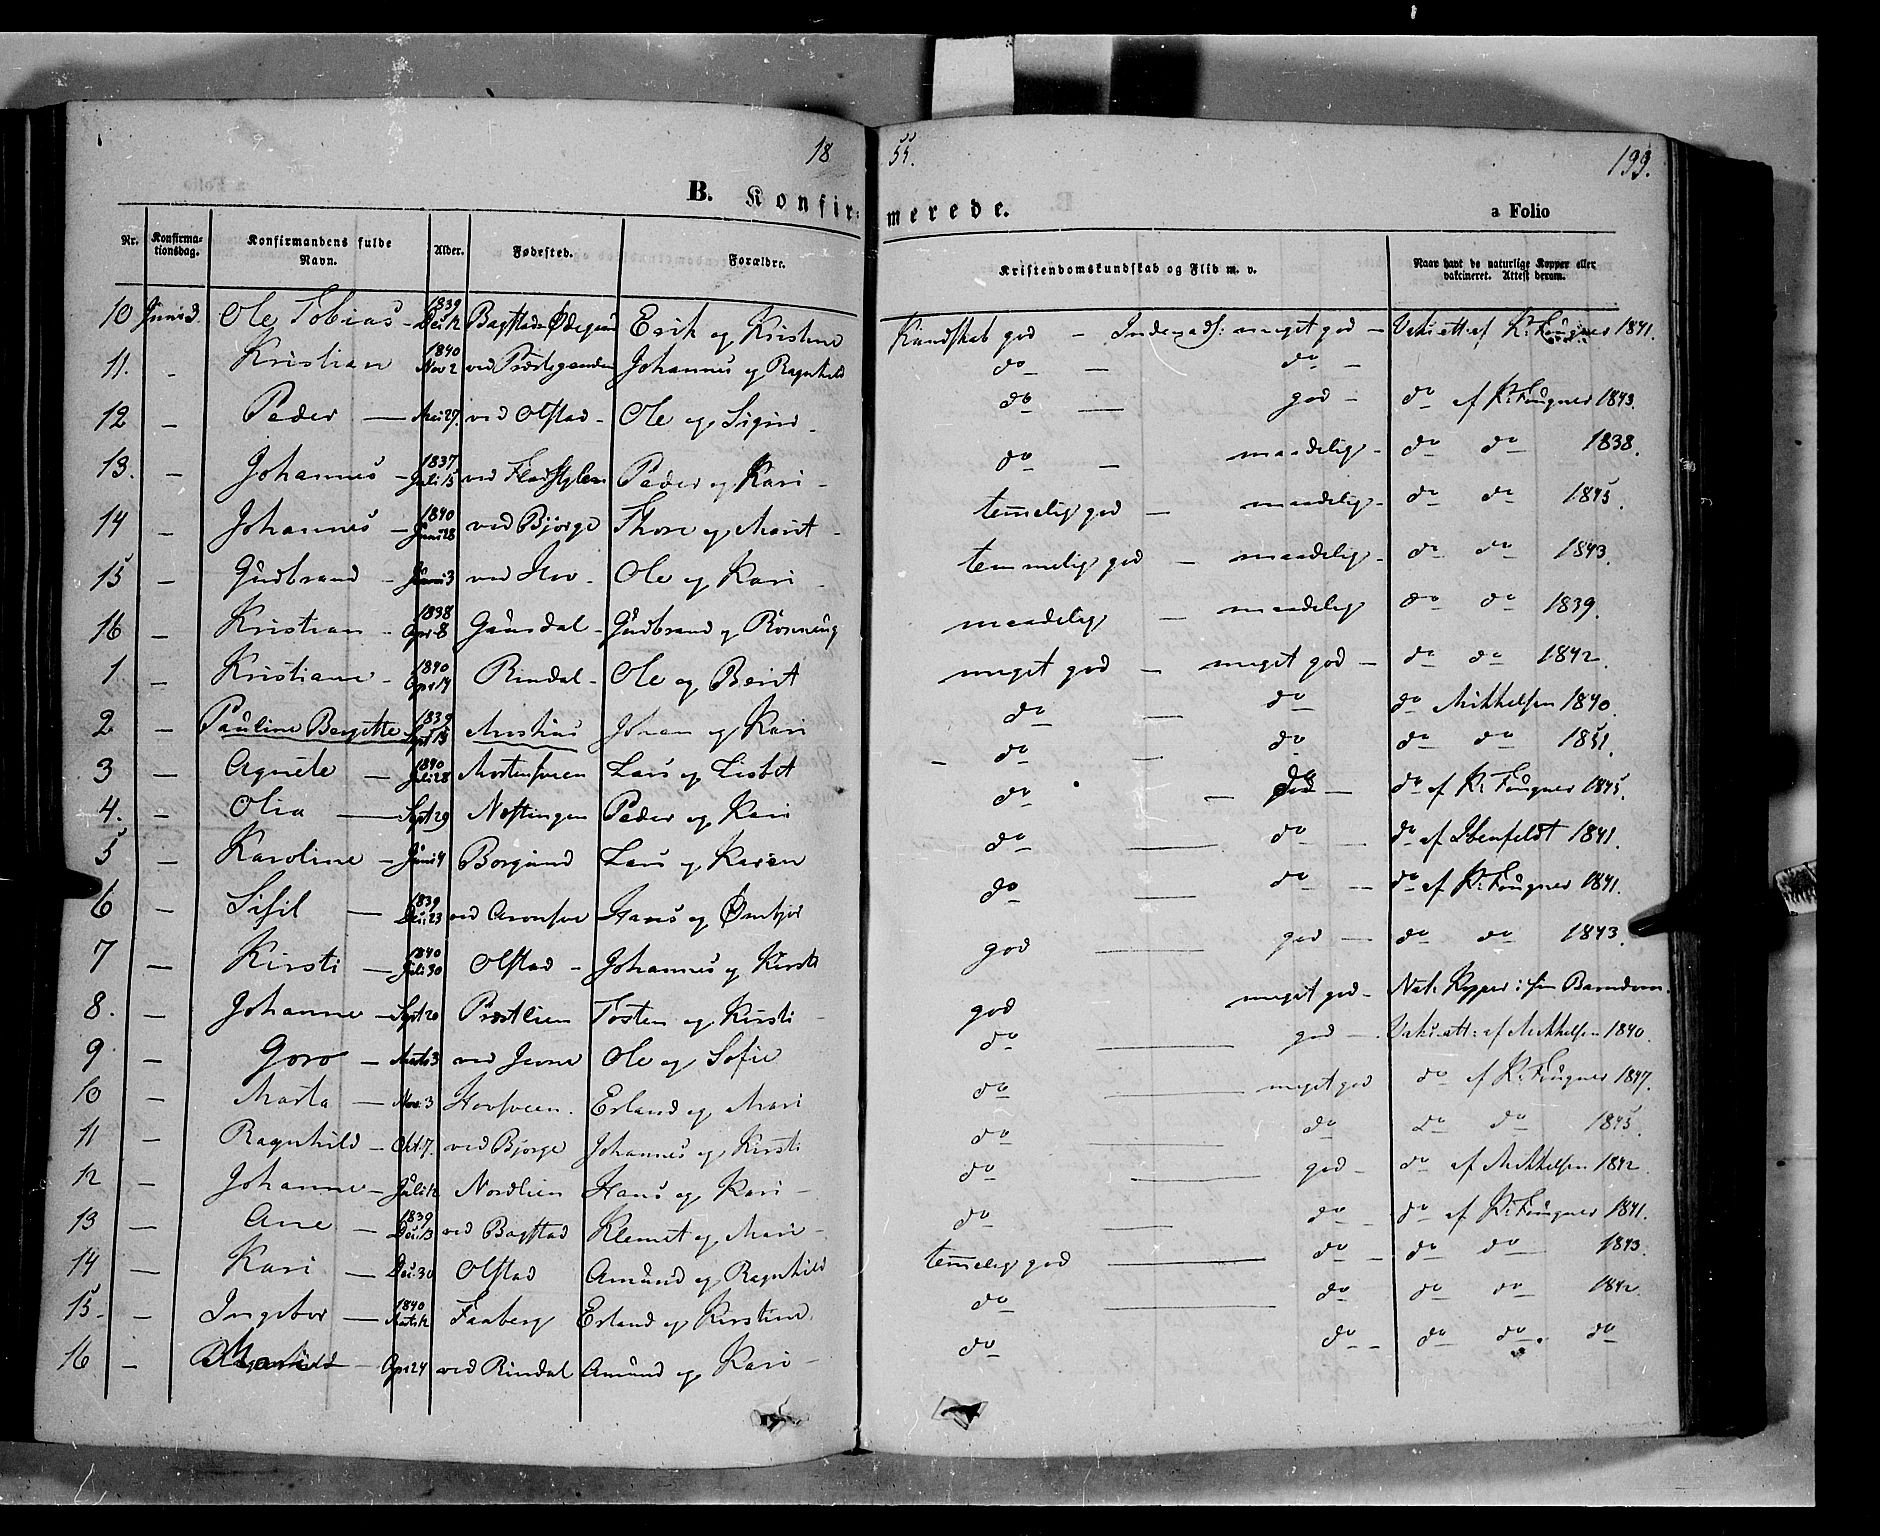 18 55. 199.
B. Konfirmerede. a Folio
Nr. Konfirmationsdag. Konfirmandens fulde Navn. Alder. Fødested. Forældre. Kristendomskundskab og Flid m. v. Naar havt de naturlige Kopper eller vaccineret. Attest derom.
10 Juni 3. Ole Tobias - 1839 Dec: 12 Bagstads Ødegaard Erik og Kristine Kundskab god - meget god - Vakc: att: af K: Fougner 1841.
11. - Kristian 1840 Nov 2 ved Johannes og Ragnhild do - do -
12 - Peder - Mai 27. ved Olstad - Ole og Sigrid - do - god - do af K: Fougner 1843.
13. - Johannes - 1837 Juli 15 ved Peder og Kari - do - maadelig - do do 1838.
14 - Johannes - 1840 Juni 28 ved Bjørge Thore og Marit - temelig god - maadelig - do do 1845.
15 - Gudbrand - Juni 3 ved Hov - Ole og Kari - temmelig god - maadelig - do do 1843.
16 - Kristian - 1838 Apr 8 Gausdal - Gudbrand og Rønnaug maadelig - maadelig do do 1839.
1. - Kristiane - 1840 Apr 14 Rindal - Ole og Berit meget god - meget god - do do 1842.
2 - Pauline Bergitte 1839 Sept 13 Johan og Kari do - do do Mikkelsen 1840.
3 - Agnete - 1840 Juli 28 Lars og Lisbet - do - do do do 1851.
4. - Olia - Sept 29 Næstingen Peder og Kari do - do - do af K: Fougner 1845.
5 - Karoline - Juni 4 Borgund Lars og Karen do - do - do af Ibenfeldt 1841.
6 - Sisil - 1839 Dec: 23 ved Hans og Ømbjør do - do - do af K: Fougner 1841.
7 - Kirsti - 1840 Juli 30 Olstad - Johannes og Kirsti god - god - do do 1843.
8. - Johanne - Sept 20 Præstlien Tosten og Kirsti - god meget god - Nat: Kopper i sin Barndom.
9 - Goro - Marts 3 ved Jevne Ole og Sofie do - god - Vakc: att: af Mikkelsen 1840.
10 - Marta - Nov: 3 Hovsveen. Erland og Mari do - meget god do af K: Fougner 1847.
11 - Ragnhild - Okt: 7. ved Bjørge Johannes og Kirsti do - do do do 1845.
12 - Johanne - Juli 12 Nordlien Hans og Kari - do - god - do af Mikkelsen 1842.
13 - Ane - 1839 Dec: 13 ved Bagstad Klemet og Mari - do - do - do af K: Fougner 1841.
14 - Kari - Dec: 30 Olstad Amund og Ragnhild temelig god - do - do do 1843.
15. - Ingebor - 1840 Marts 12 Faaberg Erland og Kirstine. do - do do do 1842.
16 - - Apr 24 ved Rindal Amund og Kari - do do - do do do